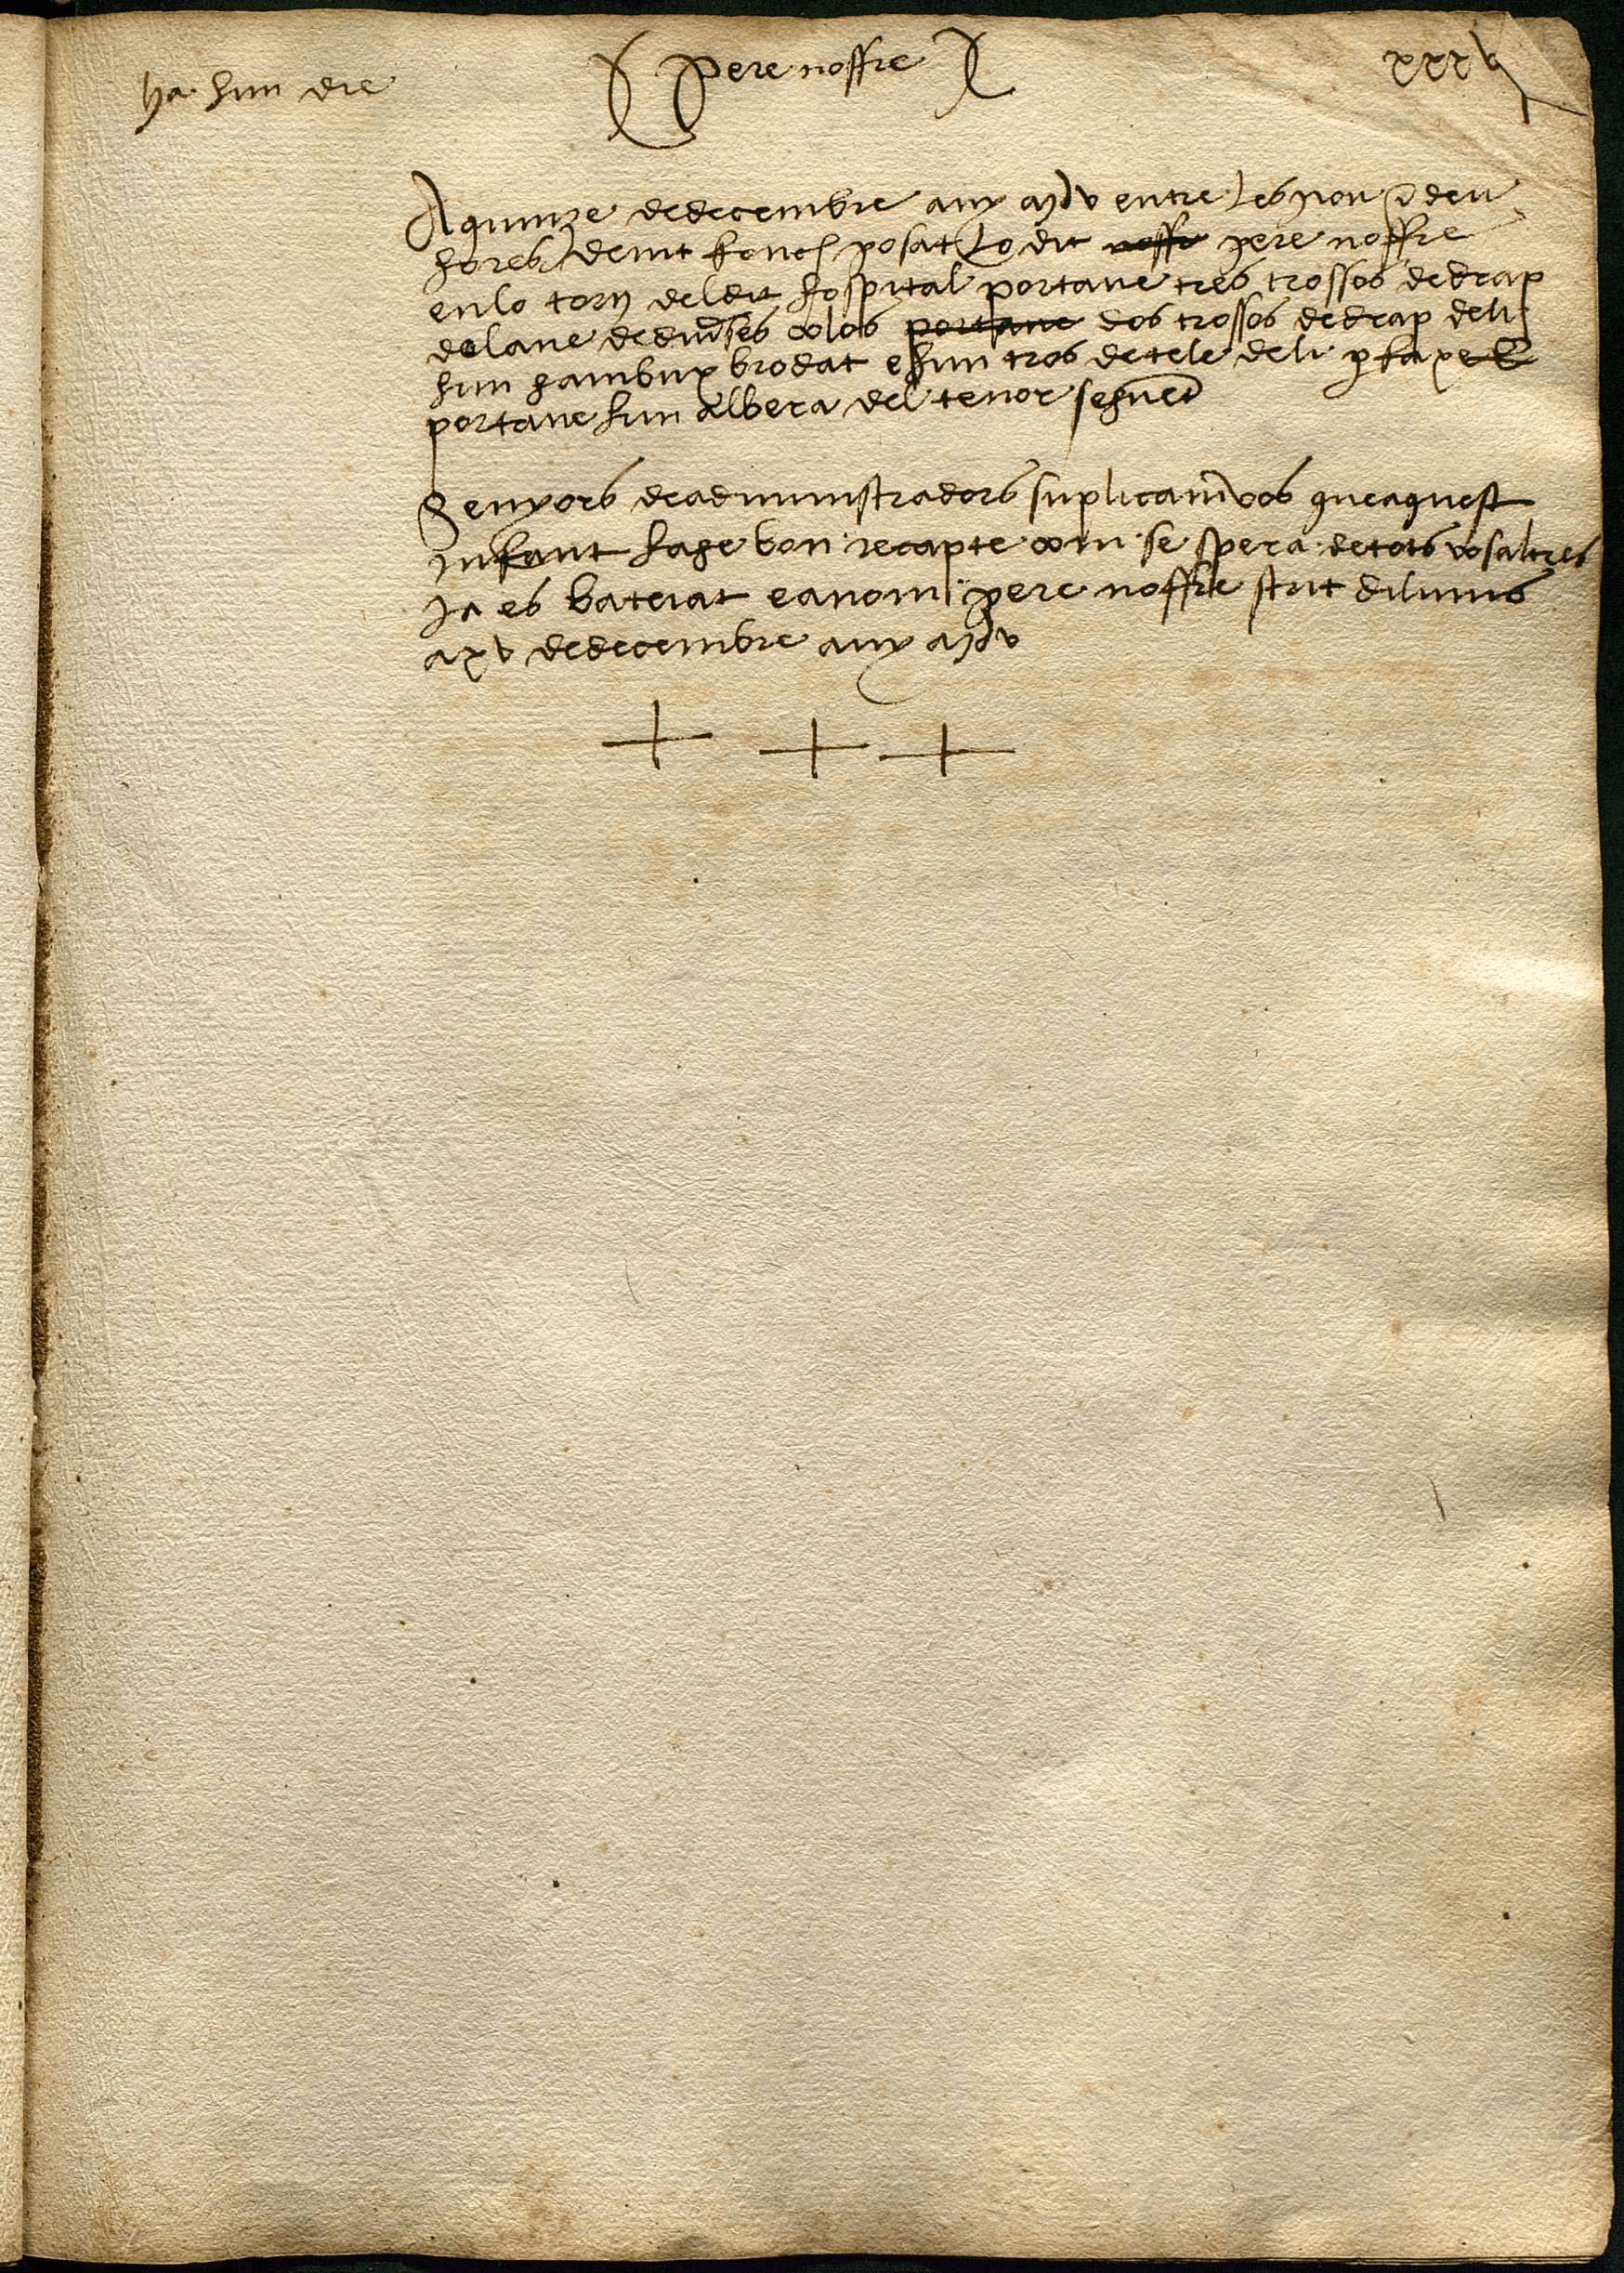 ha hun die
Pere noffre
xxxv
A quinze de decembre any mdv entre les nou e deu
hores de nit fonch posat lo dit noffr pere noffre
en lo torn del dit hospital portave tres trossos de drap
de lane de diverses colos portave dos trossos de drap de li
hun gambux brodat e hun tros de tele de li
portave hun albera del tenor seguent
Senyors de administradors suplicam vos que aquest
infant hage bon recapte com se spera de tots vosaltres
Ja es bateiat e a nom pere noffre scrit diluns
a xv de decembre any mdv
+ + +